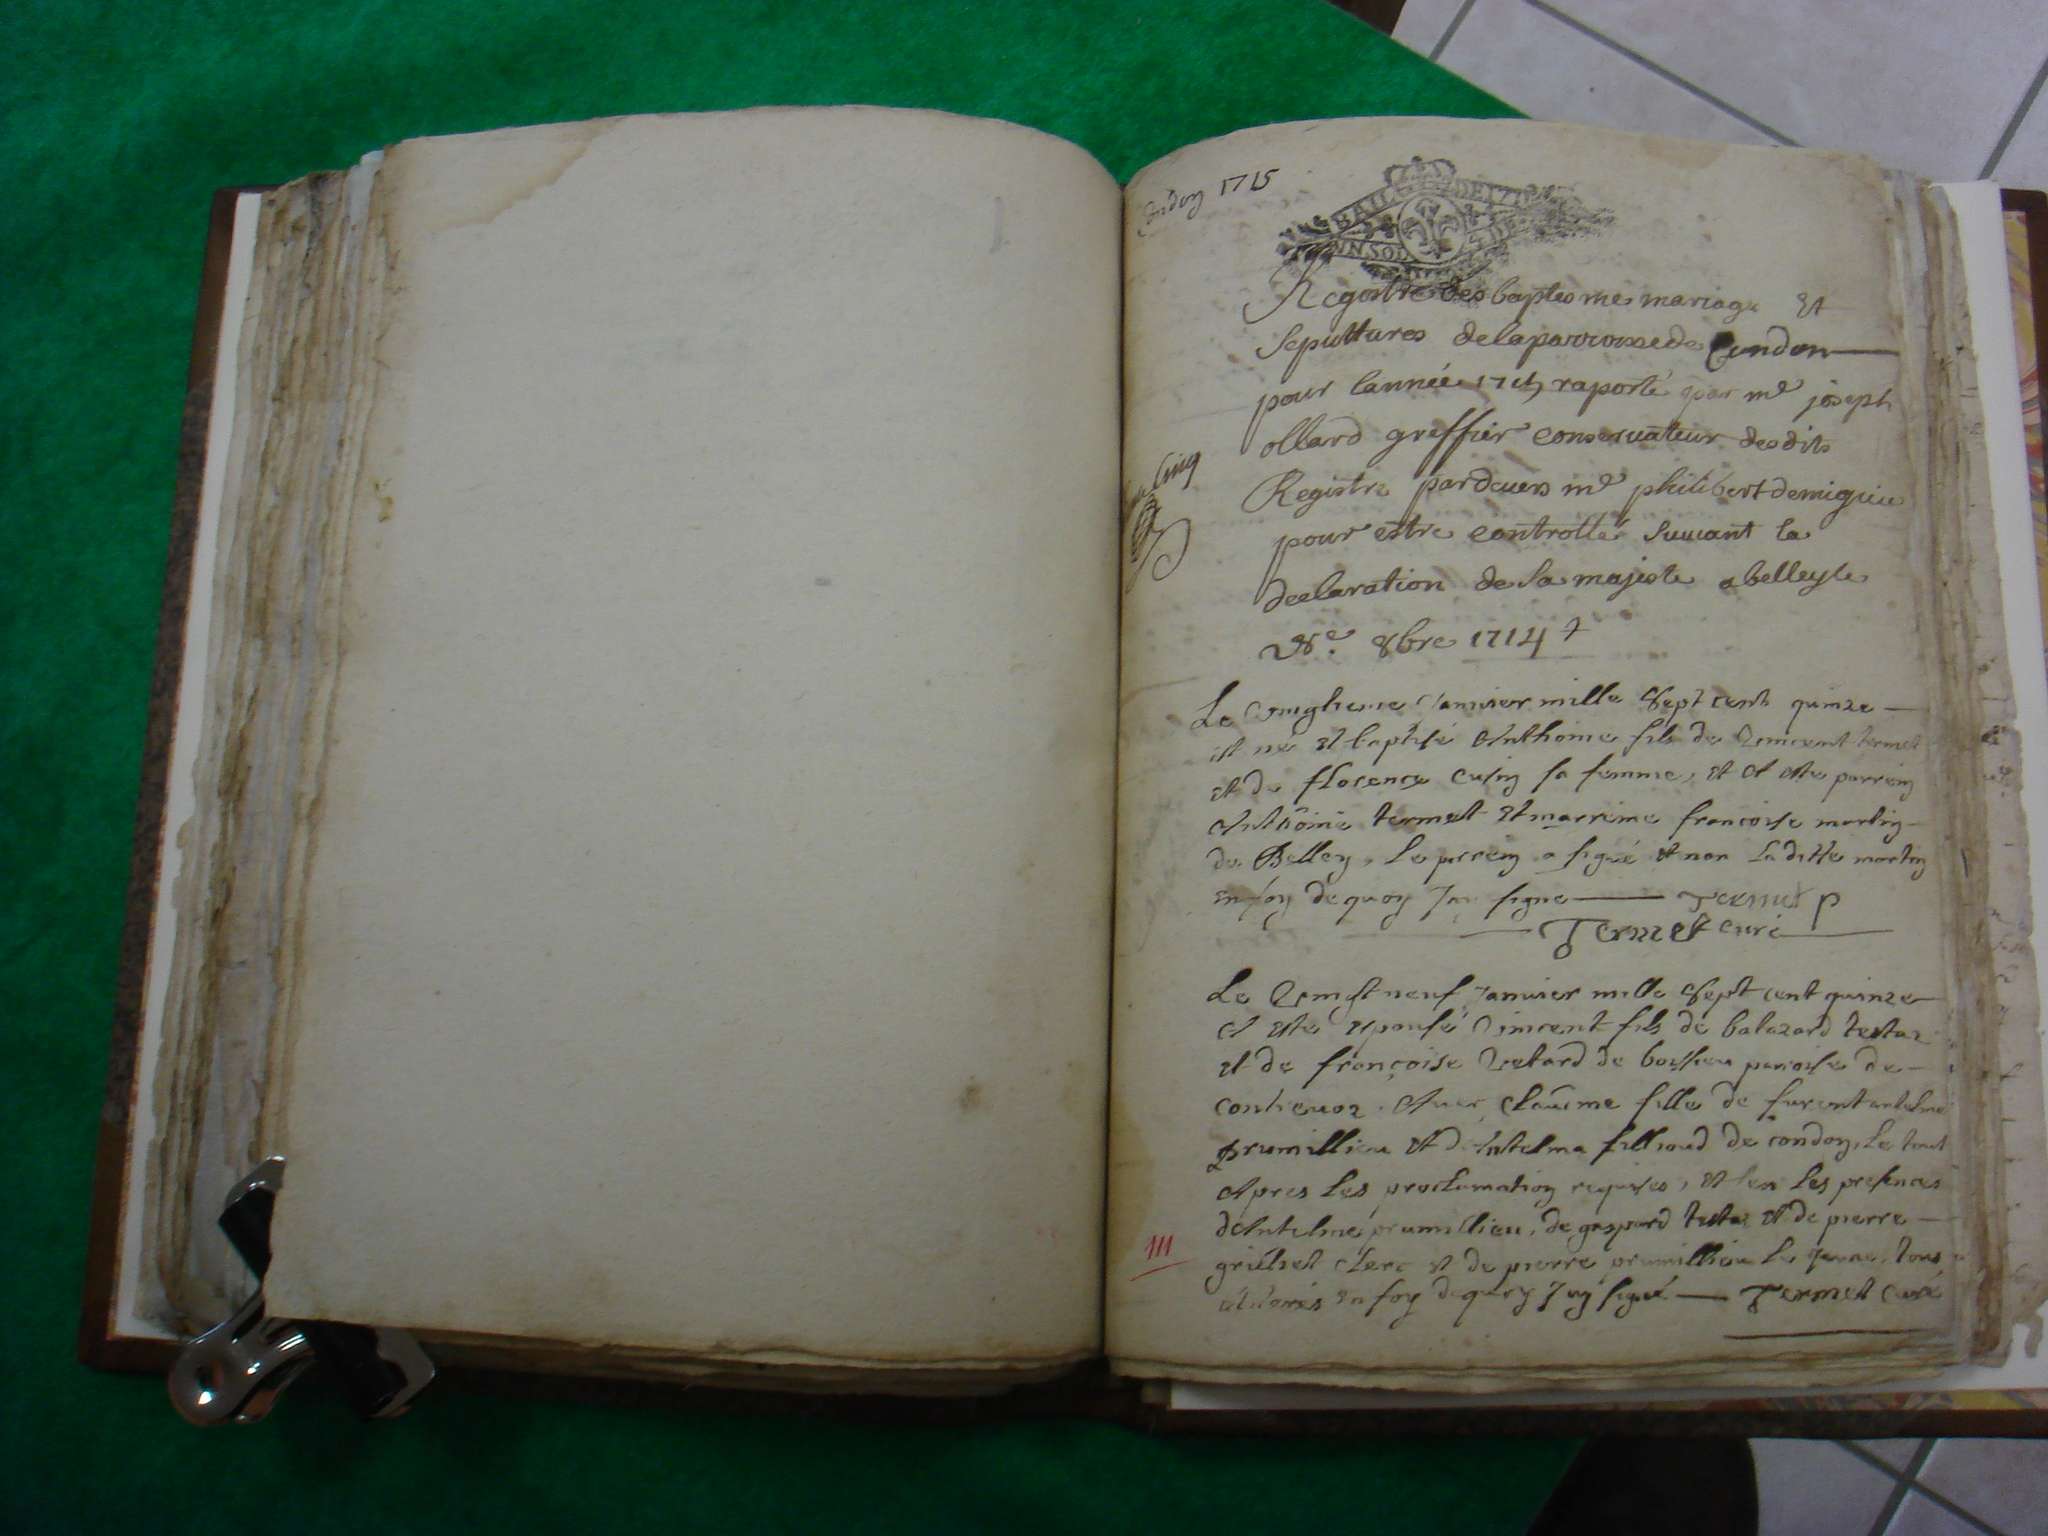 Condon 1715
BAIL DE
Registre des baptesme mariage et
sepultures de la parroisse de Condon
pour lannée 1715 raporté par me joseph
ollard greffier conservateur desdits
Registre pardevers me philibert demigieu
pour estre controllé suivant la
declaration de sa majeste a belley le
8bre 1714
cinq
Le Janvier mille sept cent quinze
est né et baptisé Anthoine fils de Vincent termet
et de florence cusin sa femme, et a esté parrein
Anthoine termet et marreine francoise martin
de Belley, le parrein a signé et non laditte martin
en foy de quoy Jay signe Termet p
Termet curé
Le Vingt neuf Janvier mille sept cent quinze
a esté epousé Vincent fils de balazard testaz
et de françoise Vetard de boissieu paroisse de
contrevoz. Avec Claudine fille de fu
prumillieu et dAntelma fillioud de condon, le tout
Apres les proclamation requises, et en les presences
dAntelme prumillieu, de gaspard testaz et de pierre
grilliet clerc et de pierre prumillieu le jeune, tous
en foy de quoy Jay signé Termet Curé
111